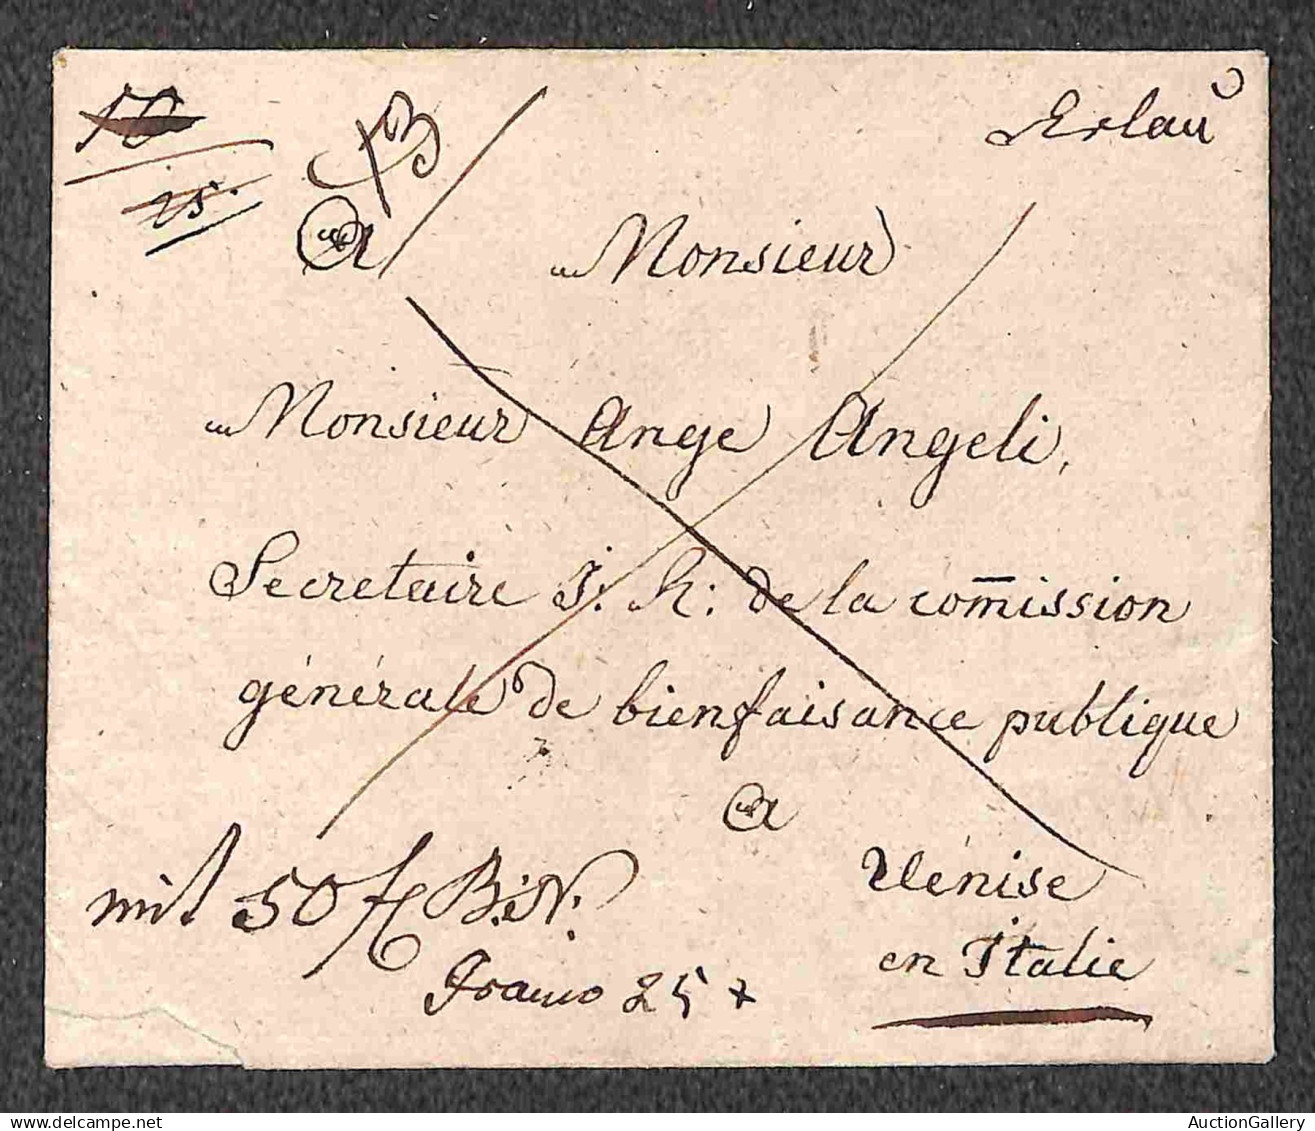 Erlau
50
25.
a
Monsieur
Monsieur Ange Angeli,
Secretaire I. R: de la com̅ission
générale de bienfaisance publique
a
Venise
en Italie
mit 50 f B:N.
Franco 25 x
AuctionGallery